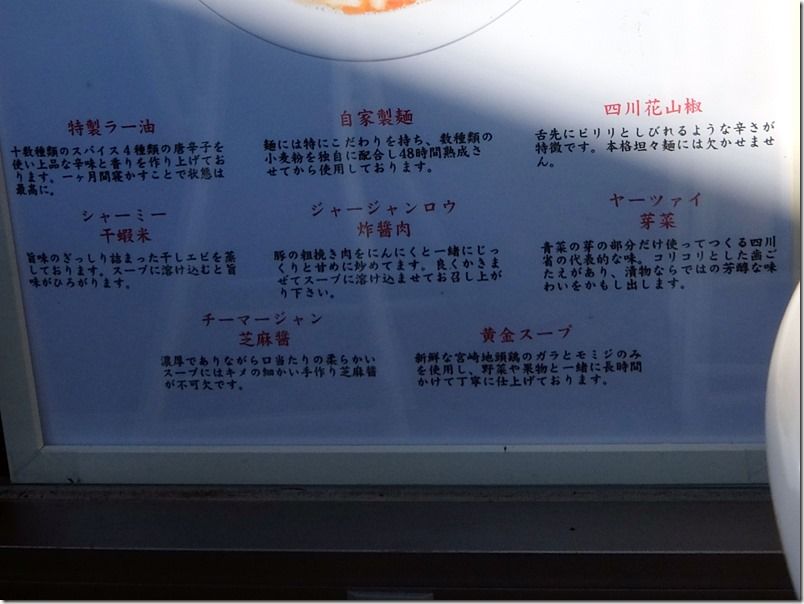 特製ラー油
十数種類のスパイス4種類の唐辛子を
使い上品な辛味と香りを作り上げてお
ります。一ヶ月間寝かすことで状態は
最高に。
自家製麺
麺には特にこだわりを持ち、数種類の
小麦粉を独自に配合し48時間熟成さ
せてから使用しております。
四川花山椒
舌先にピリリとしびれるような辛さが
特徴です。本格坦々麺には欠かせませ
ん。
シャーミー
干蝦米
旨味のぎっしり詰まった干しエビを蒸
しております。スープに溶け込むと旨
味がひろがります。
ジャージャンロウ
炸醬肉
豚の粗挽き肉をにんにくと一緒にじっ
くりと甘めに炒めてます。良くかきま
ぜてスープに溶け込ませてお召し上が
り下さい。
ヤーツァイ
芽菜
青菜の芽の部分だけ使ってつくる四川
省の代表的な味。コリコリとした歯ご
たえがあり、漬物ならではの芳醇な味
わいをかもし出します。
チーマージャン
芝麻醬
濃厚でありながら口当たりの柔らかい
スープにはキメの細かい手作り芝麻醬
が不可欠です。
黄金スープ
新鮮な宮崎地頭鶏のガラとモミジのみ
を使用し、野菜や果物と一緒に長時間
かけて丁寧に仕上げております。